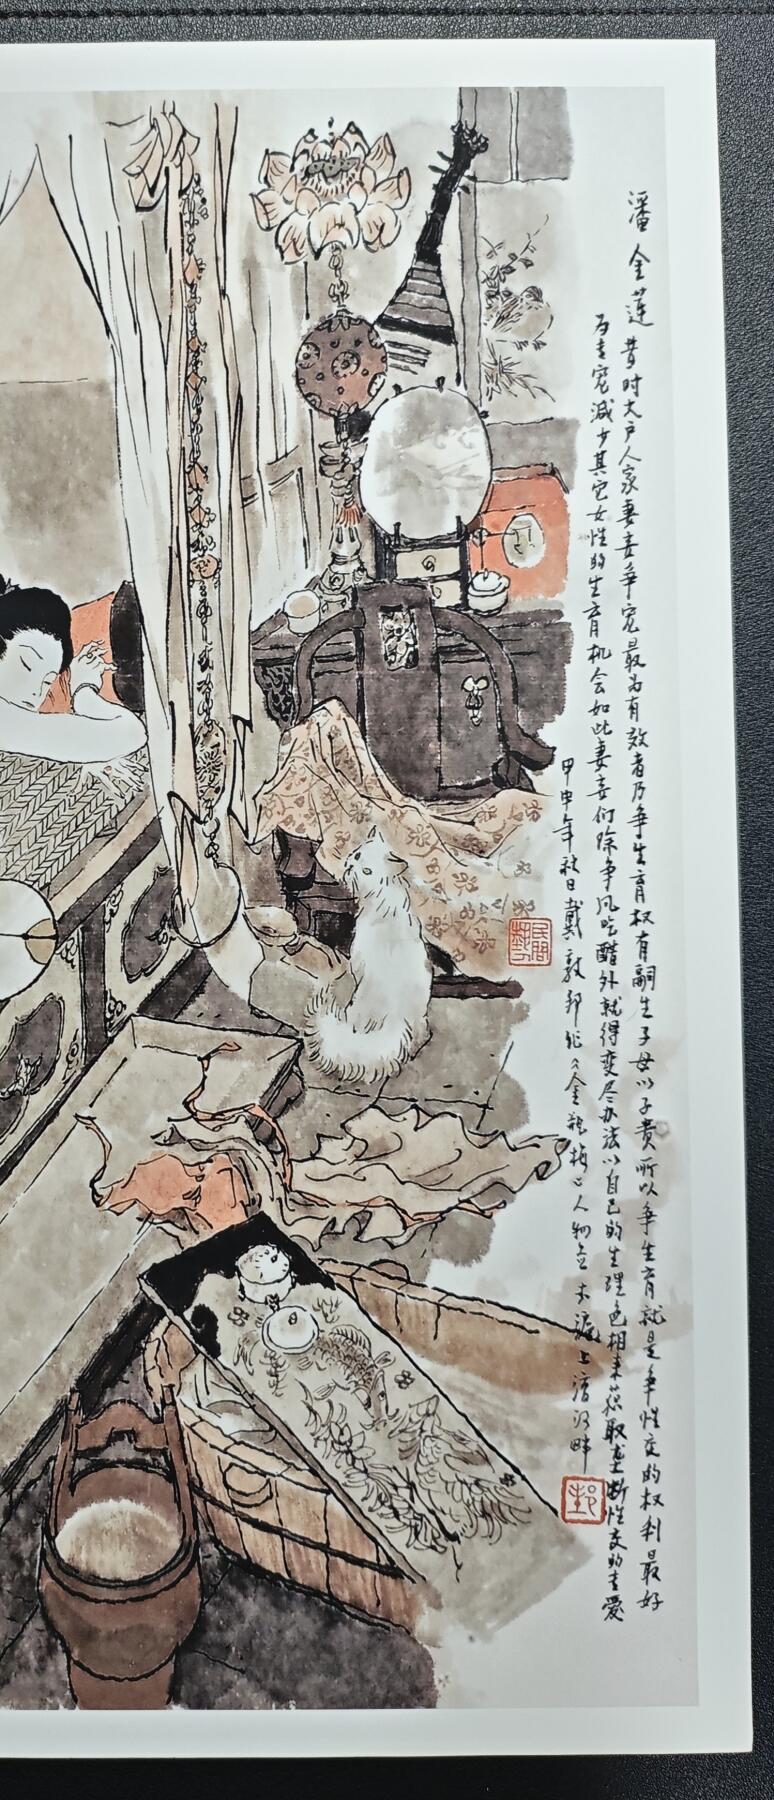 潘金莲 昔时大户人家妻妾争宠最为有效者乃争生育权有嗣生子母以子贵所以争生育就是争性交的权利最好
为专宠减少其它女性的生育机会如此妻妾们除争风吃醋外就得变尽办法以自己的生理色相来获取垄断性交的专爱
甲申年秋日戴敦邦作《金瓶梅》人物